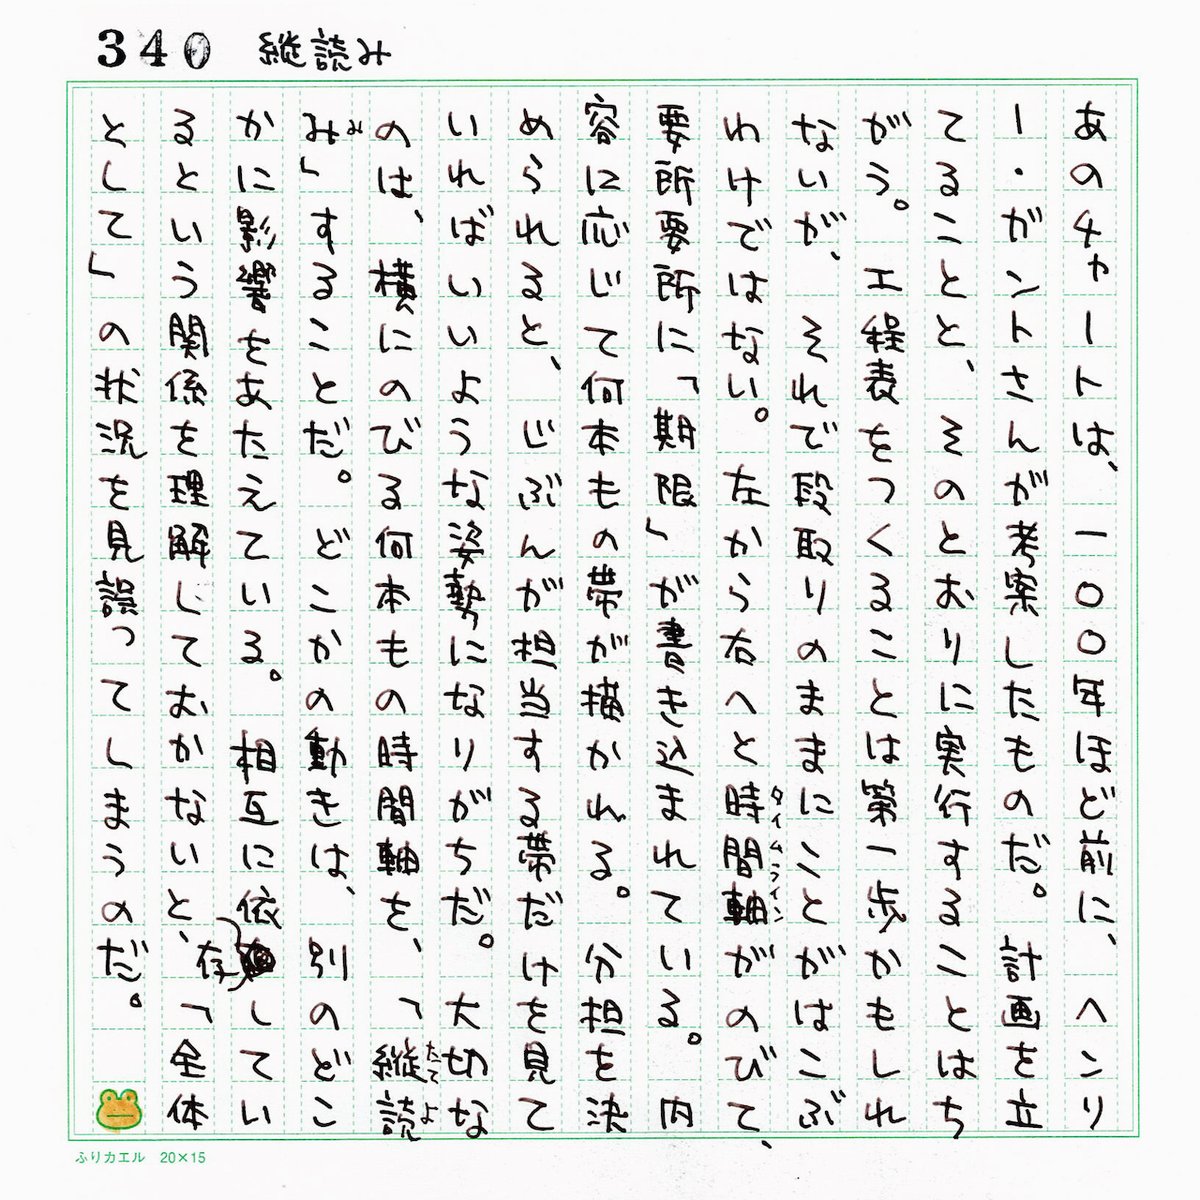 340 縦読み
あのチャートは、一〇〇年ほど前に、ヘンリ
ー・ガントさんが考案したものだ。計画を立
てることと、そのとおりに実行することはち
がう。工程表をつくることは第一歩かもしれ
ないが、それで段取りのままにことがはこぶ
わけではない。左から右へと時間軸がのびて、
タイムライン
要所要所に「期限」が書き込まれている。内
容に応じて何本もの帯が描かれる。分担を決
められると、じぶんが担当する帯だけを見て
いればいいような姿勢になりがちだ。大切な
のは、横にのびる何本もの時間軸を、「縦読
たてよ
み」することだ。どこかの動きは、別のどこ
み
かに影響をあたえている。相互に依存してい
るという関係を理解しておかないと、「全体
として」の状況を見誤ってしまうのだ。
ふりカエル 20×15